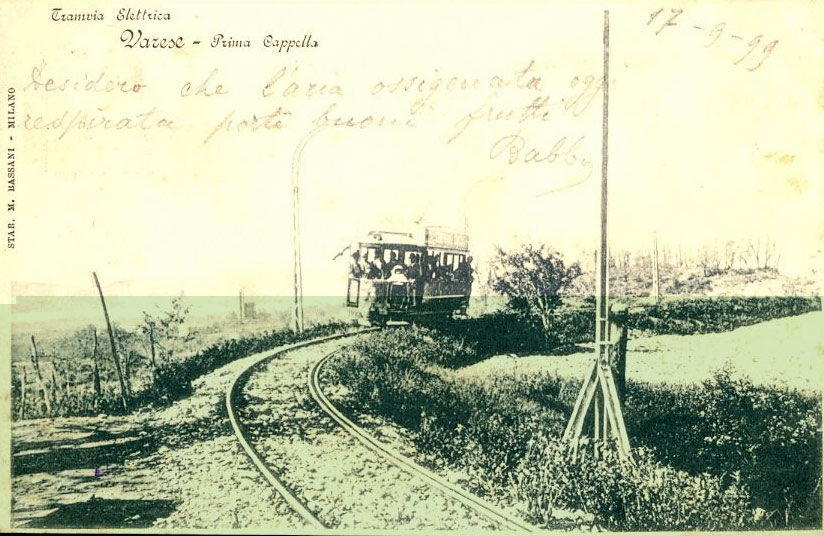 Tramvia Elettrica
Varese - Prima Cappella
17-9-99
Desidero che l'aria ossigenata oggi
respirata porti buoni frutti
Babby
STAB. M. BASSANI - MILANO